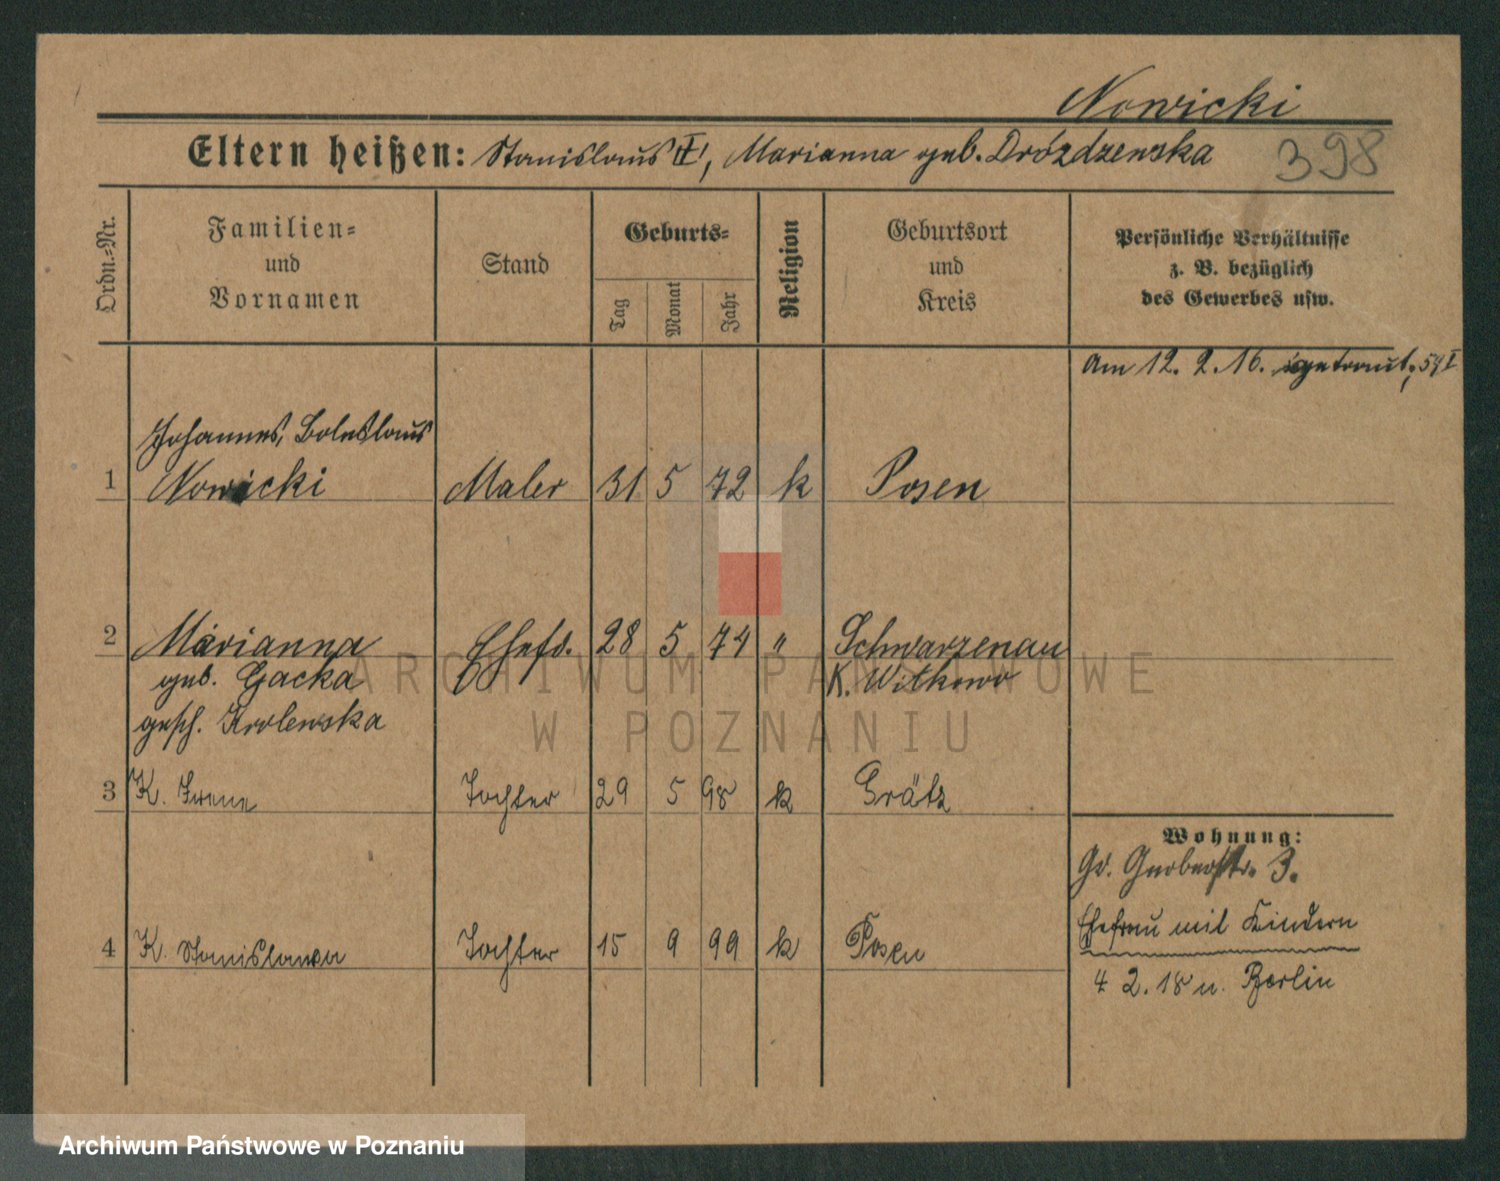 Nowicki
Eltern heißen: Stanislaus, Marianna geb. Drózdzenska
398
Ordn.-Nr.
Familien-
und
Vornamen
Stand
Geburts-
Tag
Monat
Jahr
Religion
Geburtsort
und
Kreis
Persönliche Verhältnisse
z. B. bezüglich
des Gewerbes usw.
Am 12. 2. 16. getraut,
Johannes, Boleslaus
1 Nowicki Maler 31 5 72 k Posen
2 Marianna Ehefr. 28 5 74 " Schwarzenau
geb. Gacka K. Witkowo
gesch. Krolewska
3 K. Irene Tochter 29 5 98 k Grätz
Wohnung:
Gr. Gerberstr. 3.
Ehefrau mit Kindern
4 K. Stanislawa Tochter 15 9 99 k Posen
4 2. 18 n. Berlin
ARCHIWUM PAŃSTWOWE
W POZNANIU
Archiwum Państwowe w Poznaniu